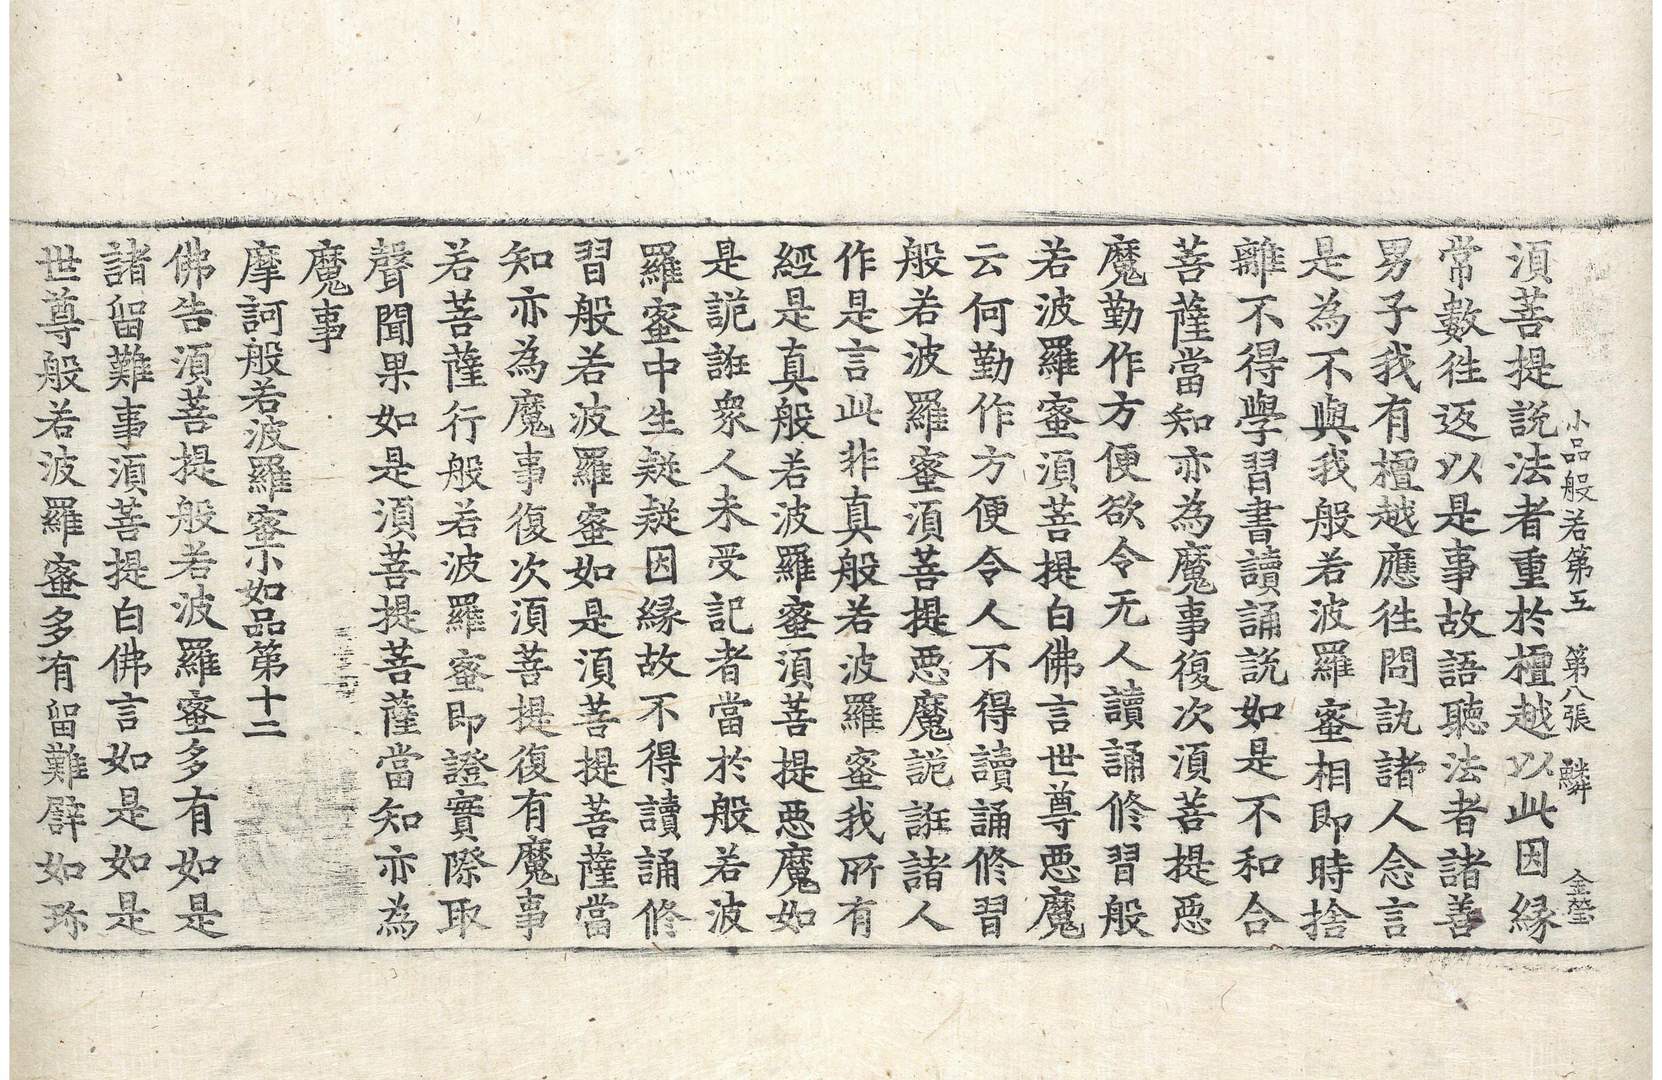 小品般若第五　第八張　鱗　金瑩
須菩提說法者重於檀越以此因緣
常數往返以是事故語聽法者諸善
男子我有檀越應往問訊諸人念言
是為不與我般若波羅蜜相即時捨
離不得學習書讀誦說如是不和合
菩薩當知亦為魔事復次須菩提惡
魔勤作方便欲令无人讀誦修習般
若波羅蜜須菩提白佛言世尊惡魔
云何勤作方便令人不得讀誦修習
般若波羅蜜須菩提惡魔詭誑諸人
作是言此非真般若波羅蜜我所有
經是真般若波羅蜜須菩提惡魔如
是詭誑衆人未受記者當於般若波
羅蜜中生疑疑因緣故不得讀誦修
習般若波羅蜜如是須菩提菩薩當
知亦為魔事復次須菩提復有魔事
若菩薩行般若波羅蜜即證實際取
聲聞果如是須菩提菩薩當知亦為
魔事
摩訶般若波羅蜜小如品第十二
佛告須菩提般若波羅蜜多有如是
諸留難事須菩提白佛言如是如是
世尊般若波羅蜜多有留難譬如珎